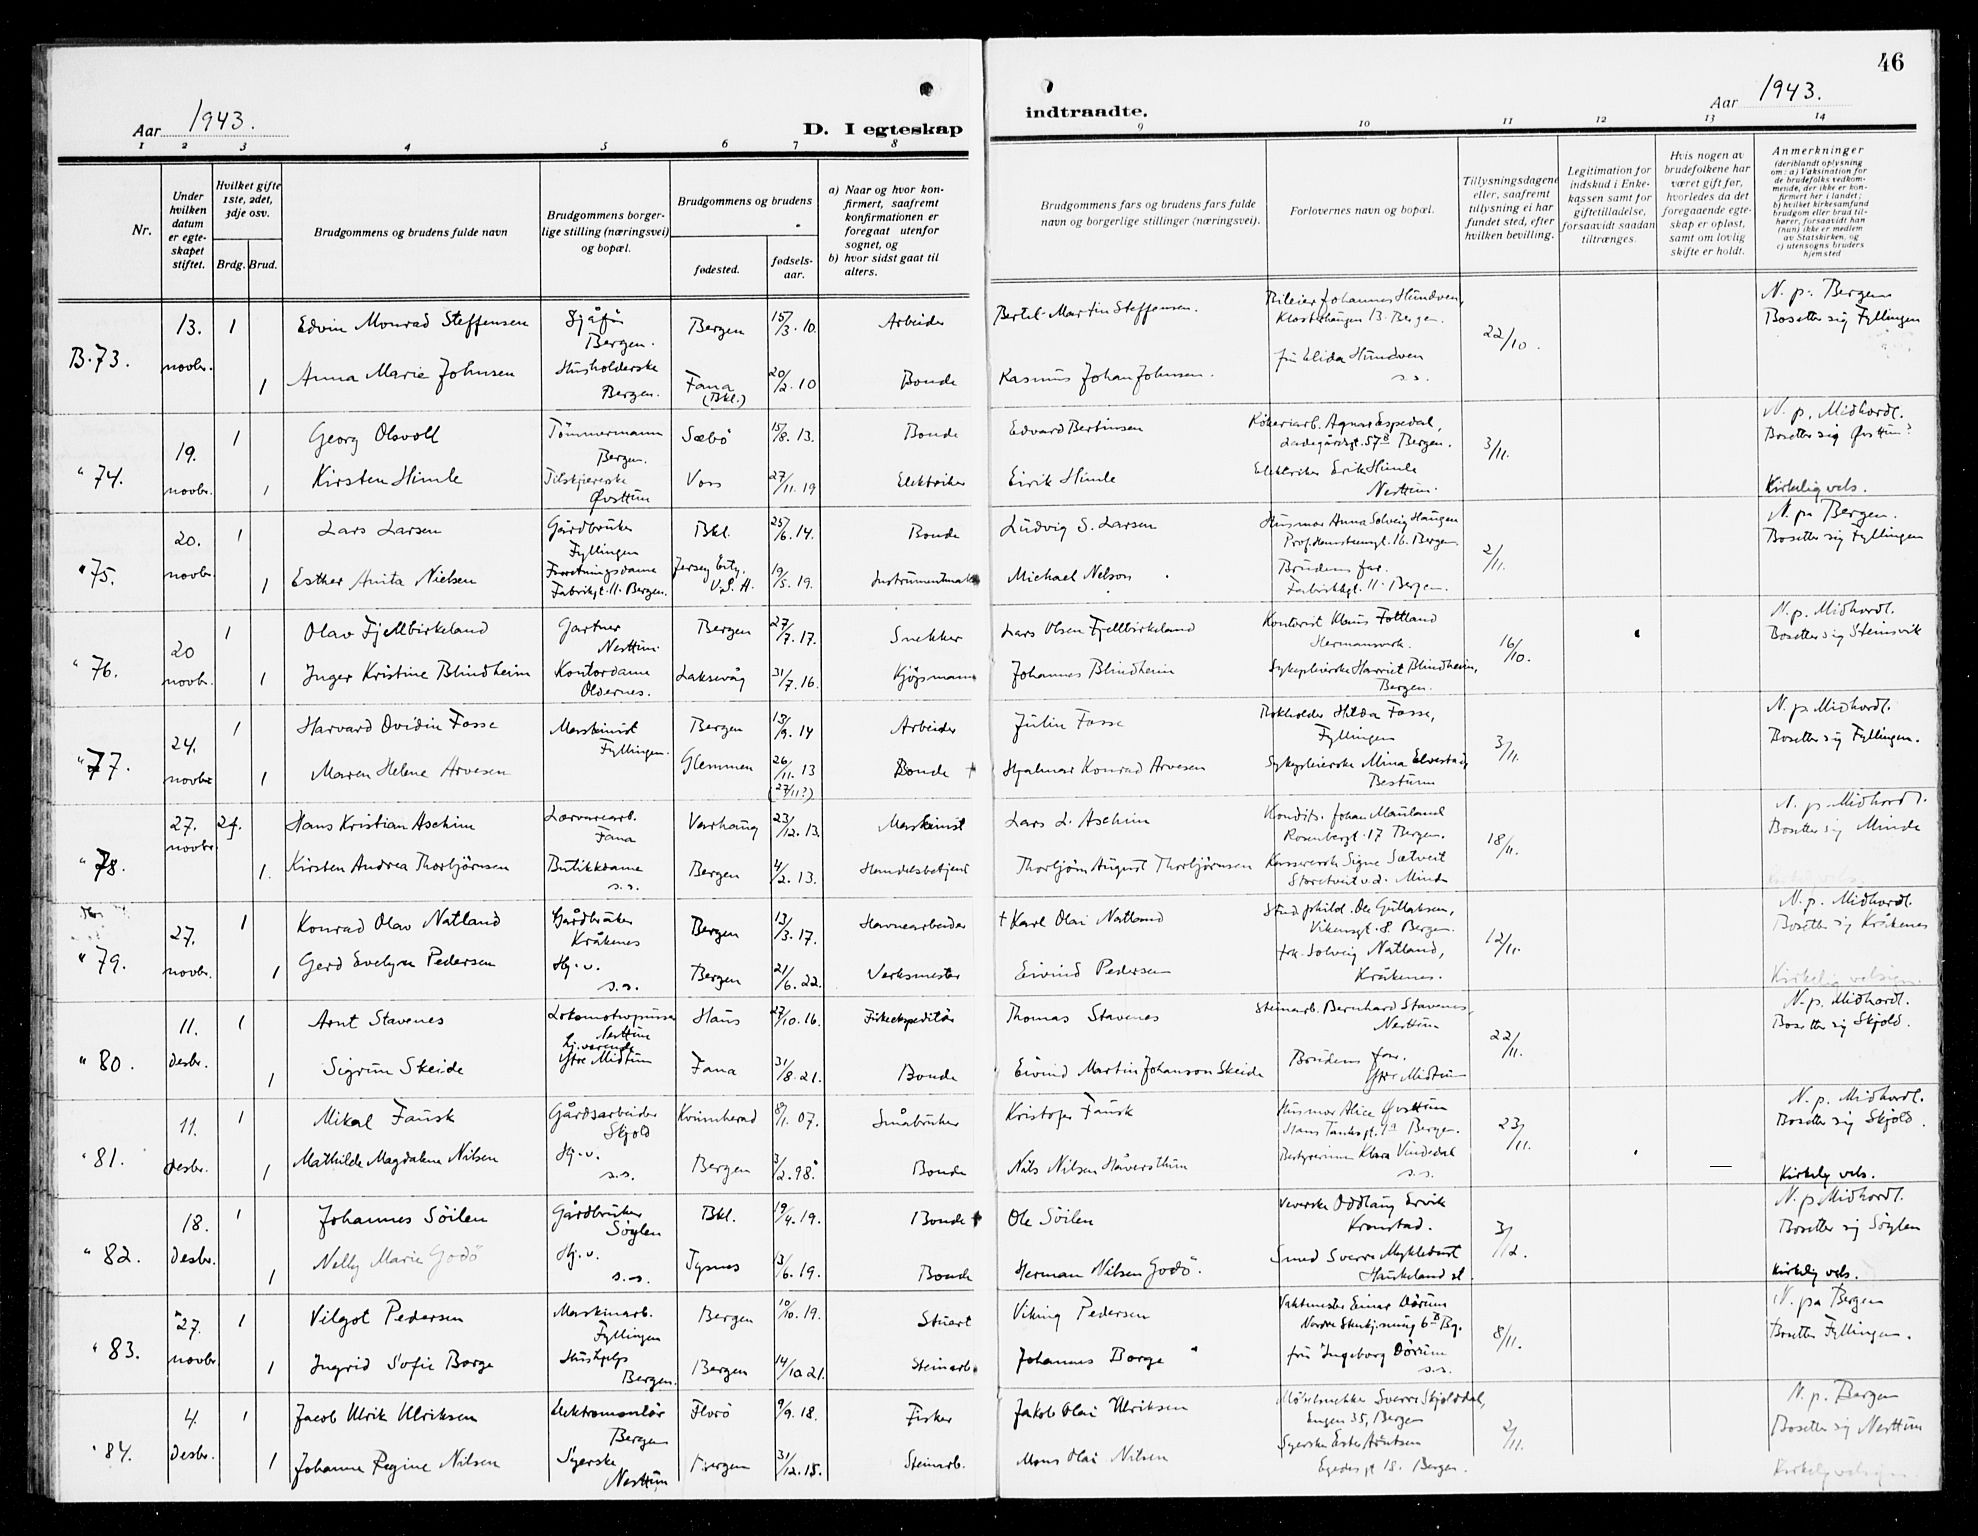 46
Aar 1943.
D. I egteskap
indtraadte.
Aar 1943.
1 2 3 4 5 6 7 8 9 10 11 12 13 14
Nr.
Under hvilken datum er egteskapet stiftet.
Hvilket gifte 1ste, 2det, 3dje osv.
Brdg. Brud.
Brudgommens og brudens fulde navn
Brudgommens borgerlige stilling (næringsvei) og bopæl.
Brudgommens og brudens
fødested.
fødselsaar.
a) Naar og hvor konfirmert, saafremt konfirmationen er foregaat utenfor sognet, og
b) hvor sidst gaat til alters.
Brudgommens fars og brudens fars fulde navn og borgerlige stillinger (næringsvei).
Forlovernes navn og bopæl.
Tillysningsdagene eller, saafremt tillysning ei har fundet sted, efter hvilken bevilling.
Legitimation for indskud i Enkekassen samt for giftetilladelse, forsaavidt saadan tiltrænges.
Hvis nogen av brudefolkene har været gift før, hvorledes da det foregaaende egteskap er opløst, samt om lovlig skifte er holdt.
Anmerkninger
(deriblandt oplysning om: a) Vaksination for de brudefolks vedkommende, der ikke er konfirmert her i landet; b) hvilket kirkesamfund brudgom eller brud tilhører, forsaavidt han (hun) ikke er medlem av Statskirken, og c) utensogns bruders hjemsted
B.73. 13. novbr. 1 Edvin Monrad Steffensen Sjåfør Bergen. Bergen 15/3.10. Arbeider Bertel Martin Steffensen. Johannes Hundven, Klosterhaugen 13. Bergen. 22/10. N. p. Bergen Bosetter sig Fyllingen
1 Anna Marie Johnsen Husholderske Bergen. Fana (Bkl.) 20/2.10 Bonde Rasmus Johan Johnsen. fru Elida Hundven s.s.
" 74. 19. novbr. 1 Georg Olsvoll Tømmermann Bergen. Sæbö 15/8.13. Bonde Edvard Bertinsen Agnar Espedal, Ladegårdsgt. 57 Bergen. 3/11. N. p. Midhordl. Bosetter sig Øvsttun?
1 Kirsten Himle Tilskjererske Øvsttun Voss 27/11.19 Elektriker Eirik Himle Elektriker Erik Himle Nesttun. Kirkelig vels.
" 75. 20. novbr. 1 Lars Larsen Gårdbruker Fyllingen Bkl. 25/6.14. Bonde Ludvig S. Larsen Husmor Anna Solveig Haugen Prof. Hansteensgt. 16. Bergen 2/11. N. p. Bergen. Bosetter sig Fyllingen
1 Esther Anita Nielsen Forretningsdame Fabrikgt. 11. Bergen. Jersey City. U.S.A. 19/5.19. Instrumentmak Michael Nelson. Brudens far. Fabrikkgt. 11. Bergen.
" 76. 20 novbr. 1 Olav Fjellbirkeland Gartner Nesttun. Bergen 27/7.17. Snekker Lars Olsen Fjellbirkeland Kontorist Klaus Fotland Hermansverk. 16/10. N. p. Midhordl. Bosetter sig Steinsvik
1 Inger Kristine Blindheim Kontordame Oldernes. Laksevåg 31/7.16. Kjøpmann Johannes Blindheim Sykepleierske Harriet Blindheim, Bergen.
" 77. 24. novbr. 1 Harvard Ovidin Fosse Maskinist Fyllingen. Bergen 13/9.14 Arbeider Julin Fosse Hilda Fosse, Fyllingen 3/11. N. p. Midhordl. Bosetter sig Fyllingen.
1 Maren Helene Arvesen Glemmen 26/11.13 (27/11?) Bonde Hjalmar Konrad Arvesen Sykepleierske Mina Elvestad, Bestum
" 78. 27. novbr. 2g. Hans Kristian Aschim Lærvarearb. Fana Varhaug 23/12.13. Maskinist Lars L. Aschim Kondits. Johan Mauland Rosenbergt. 17 Bergen. 18/11. N. p. Midhordl. Bosetter sig Minde
1. Kirsten Andrea Thorbjörnsen Butikkdame s.s. Bergen 4/2.13. Handelsbetjent Thorbjörn August Thorbjörnsen Kassererske Signe Sætveit Storetveit v.d. Minde
" 79. 27. novbr. 1 Konrad Olav Natland Gårdbruker Kråkenes Bergen 13/3.17. Havnearbeider + Karl Olai Natland Stud. philol. Ole Gullaksen, Vikensgt. 8. Bergen. 12/11. N. p. Midhordl. Bosetter sig Kråkenes
1 Gerd Evelyn Pedersen Hj. v. s.s. Bergen 21/6.22. Verksmester Eivind Pedersen frk. Solveig Natland, Kråkenes. Kirkelig velsign.
" 80. 11. desbr. 1 Arnt Stavenes Lokomotivpusser Nesttun Haus 27/10.16. Fiskeekspeditör Thomas Stavenes Steinarb. Bernhard Stavenes, Nesttun 22/11. N. p. Midhordl. Bosetter sig Skjold.
1 Sigrun Skeide hj. værende Ytre Midtun Fana 31/8.21. Bonde Eivind Martin Johanson Skeide Brudens far. Ytre Midtun
" 81. 11. desbr. 1 Mikal Fausk Gårdsarbeider Skjold Kvinnherad 8/1.07. Småbruker Kristofer Fausk Husmor Alice Øvsttun Hans Tanksgt. 9a Bergen. 23/11. N. p. Midhordl. Bosetter sig Skjold.
1 Mathilde Magdalene Nilsen Hj. v. s.s. Bergen 3/2.98. Bonde Nils Nilsen Håversthun Bestyrerinne Klara Vindedal s.s. — Kirkelig vels.
" 82. 18. desbr. 1 Johannes Söilen Gårdbruker Söylen Bkl. 19/4.19. Bonde Ole Söilen Veverske Oddlaug Ervik Kronstad. 3/12. N. p. Midhordl. Bosetter sig Söylen
1 Nelly Marie Godö Hj. v. s.s. Tysnes 3/6.19. Bonde Herman Nilsen Godö. Smed Sverre Myklebust Haukeland st. Kirkelig vels.
" 83. 27. novbr. 1 Vilgot Pedersen Maskinarb. Fyllingen Bergen 10/10.19. Stuert Viking Pedersen Vaktmester Einar Dörum Nordre Stenkj.smug 6B Bg. 8/11. N. pa Bergen Bosetter Fyllingen.
1 Ingrid Sofie Borge Hushjelp Bergen. Bergen 14/10.21. Steinarb. Johannes Borge fru Ingeborg Dörum s.s.
" 84. 4. desbr. 1 Jacob Ulrik Ulriksen Elektromontör Bergen Florö 9/9.18. Fisker Jakob Olai Ulriksen Möbelsnekker Sverre Skjolddal, Engen 35, Bergen 2/11. N. p. Bergen Bosetter sig Nesttun
1 Johanne Regine Nilsen Syerske Nesttun Bergen 31/12.18. Steinarb. Mons Olai Nilsen Syerske Ester Arntsen Egedesgt 18. Bergen. Kirkelig velsign.